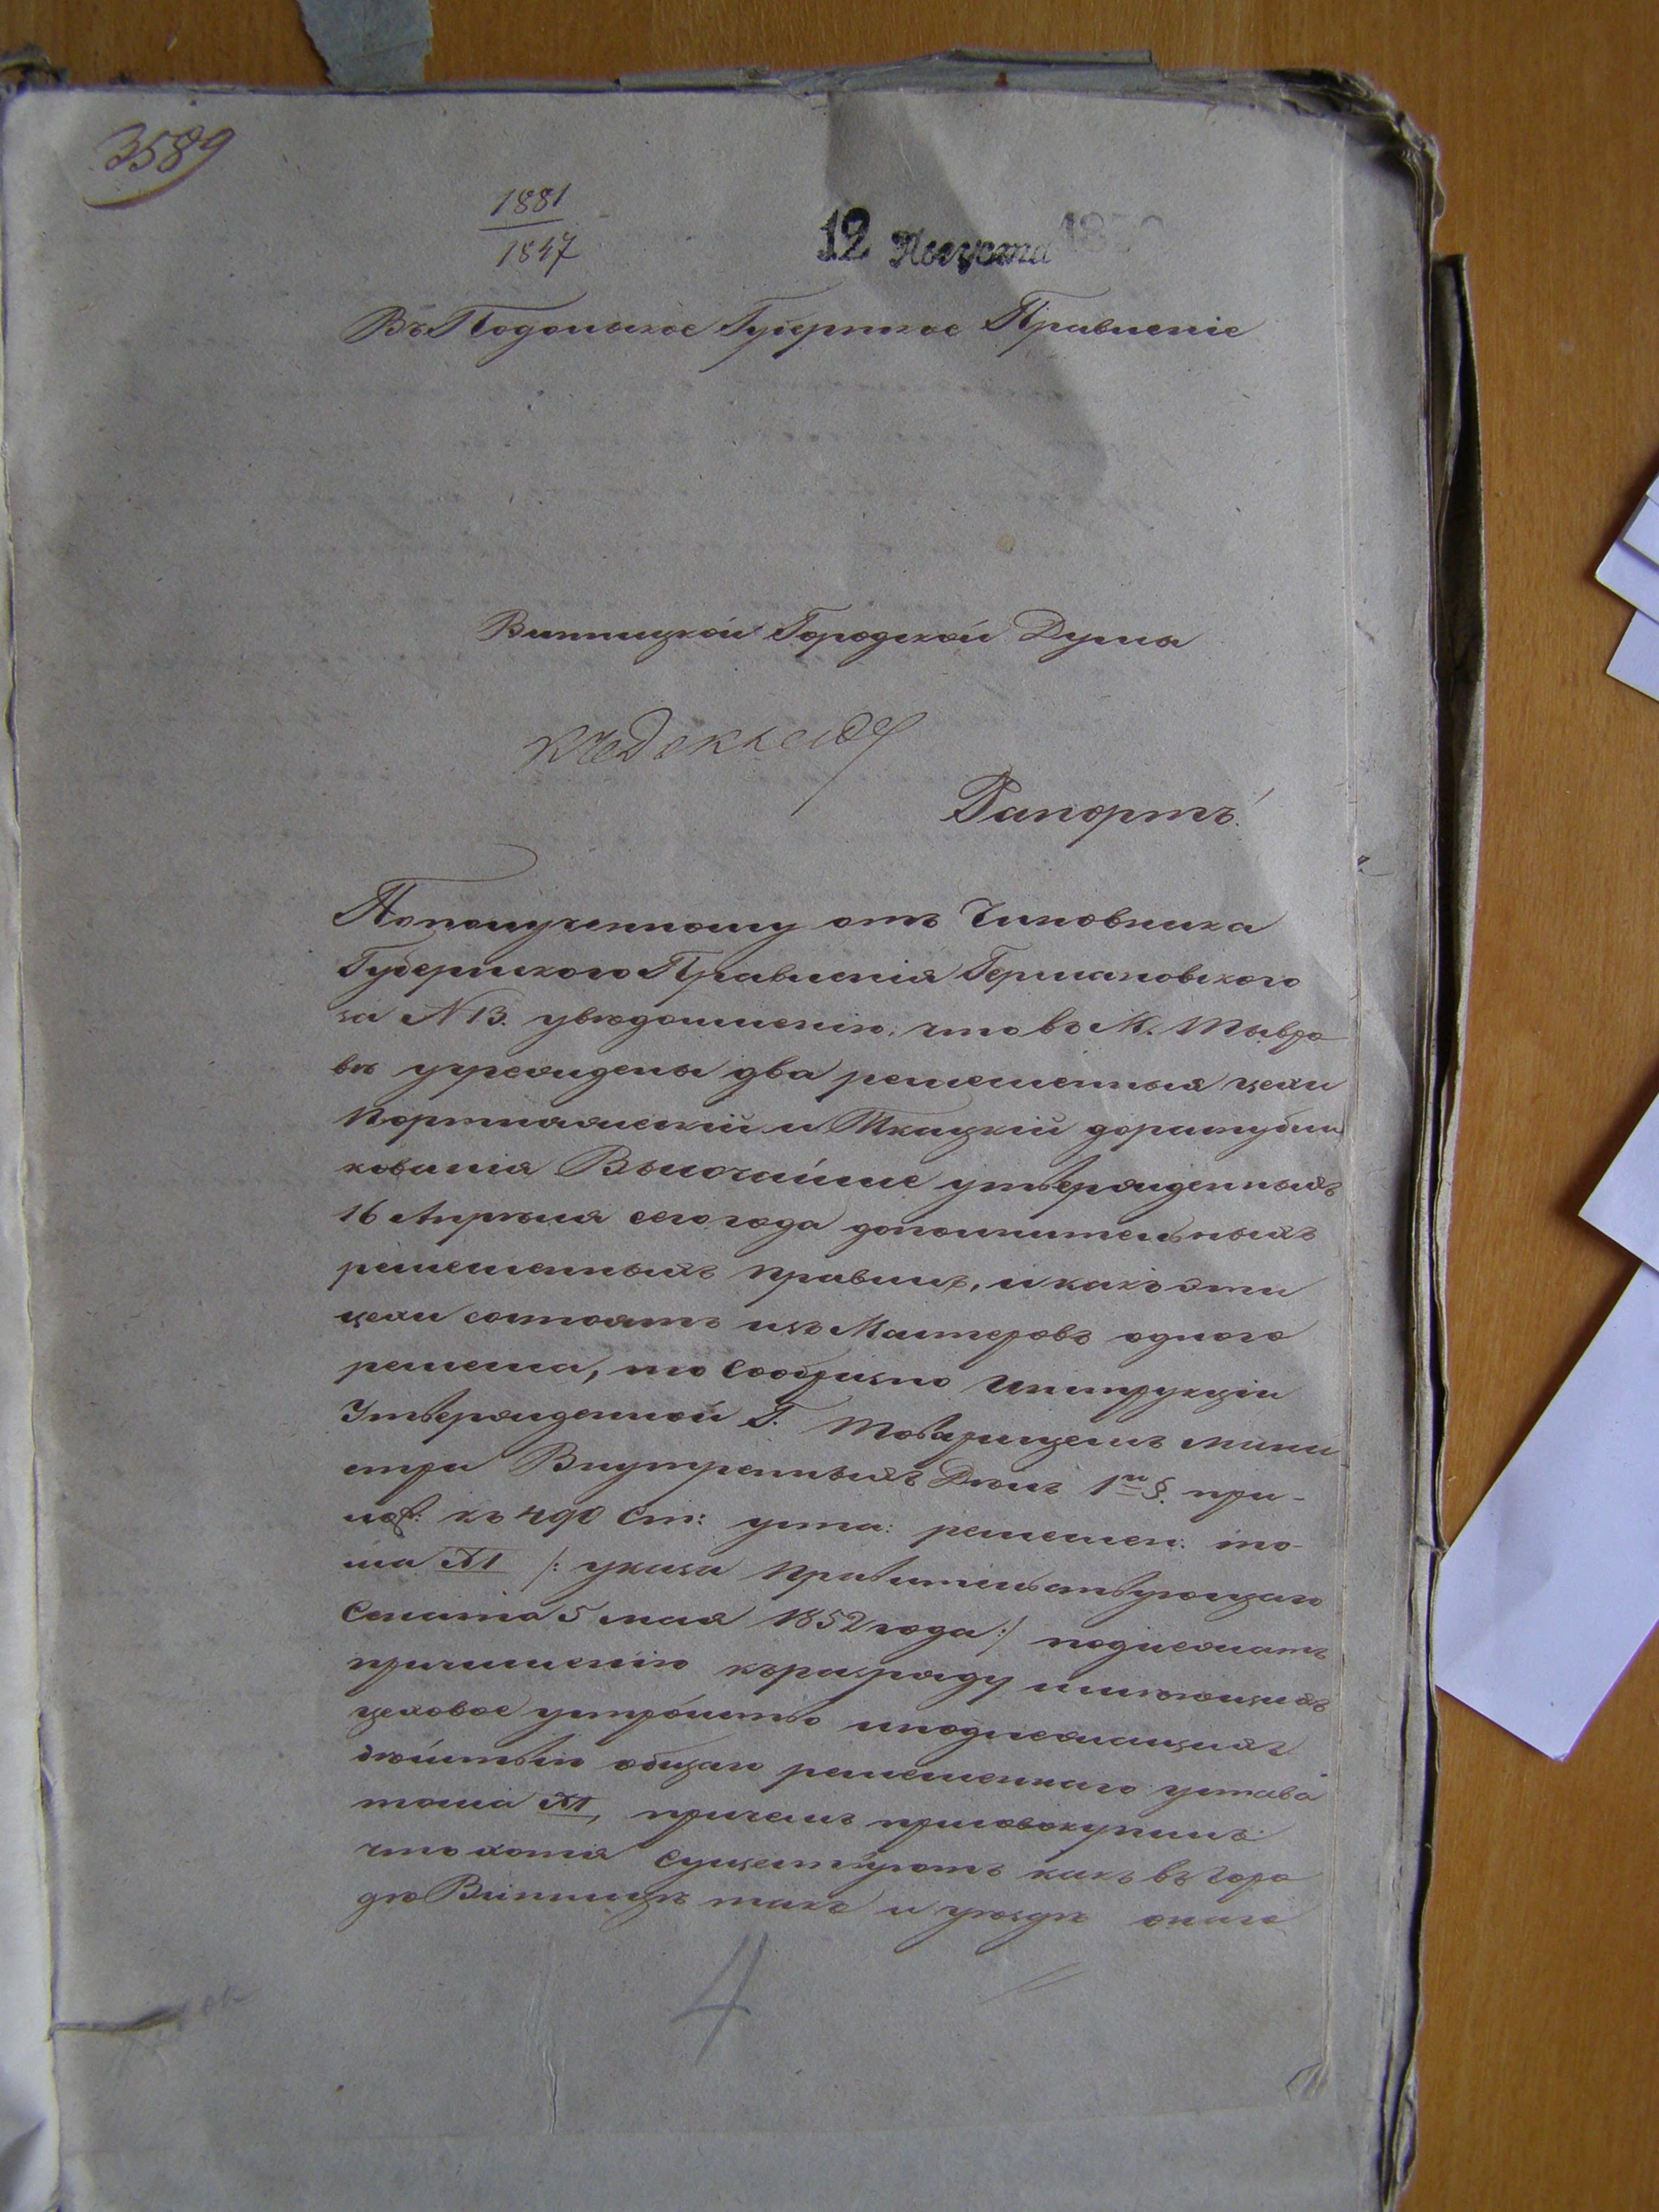 3589
1881
1847
12 Августа 185
Въ Подольское Губернское Правленіе
Винницкой Городской Думы
Къ докладу
Рапортъ.
По полученному отъ Чиновника
Губернского Правленія Германовского
за № 13. увѣдомленію, что въ М. Тывро
вѣ учреждены два ремесленныя цехи
Портняжескій и Ткацкій до распубли
кованія Высочайше утвержденныхъ
16 Апрѣля сего года дополнительныхъ
ремесленныхъ правилъ, и какъ эти
цехи состоятъ изъ Мастеровъ одного
ремесла, то сообразно Инструкціи
Утвержденной Г. Товарищемъ Мини
стра Внутреннихъ Дѣлъ 1го §. при-
лож: къ 490 Ст: уста: ремеслен: то-
ма XI /: указа Правительствующаго
Сената 5 мая 1852 года :/ подлежатъ
причисленію къ разряду имѣющихъ
цеховое устройство и подлежащихъ
дѣйствію общаго ремесленнаго устава
тома XI, причемъ присовокупилъ
что хотя существуютъ какъ въ горо
дѣ Винницѣ такъ и уѣздѣ
4